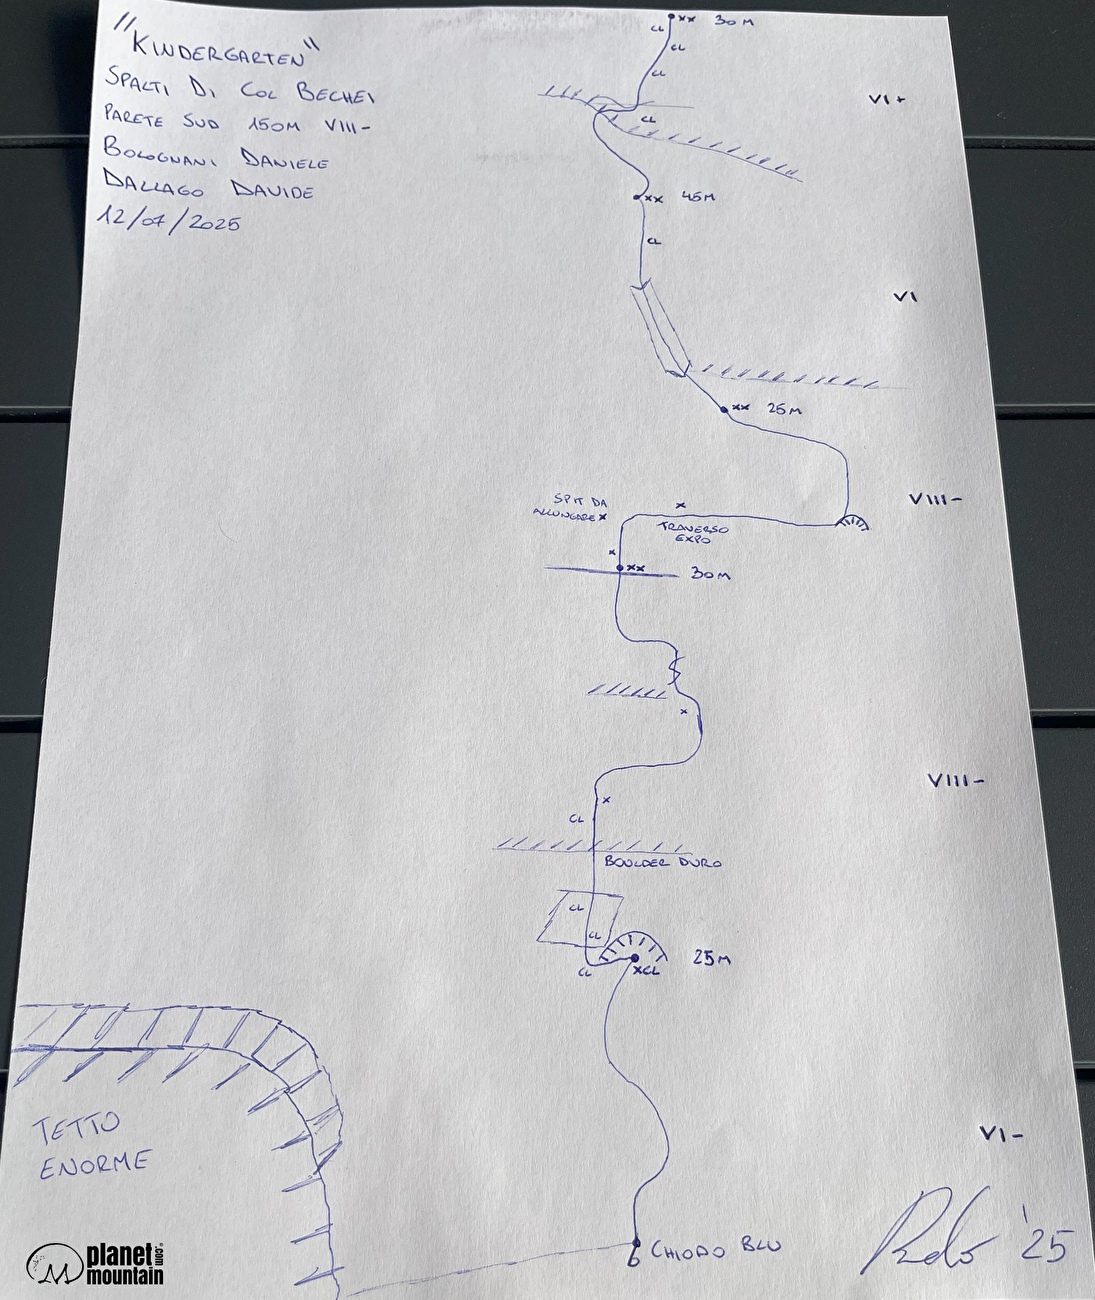 "KINDERGARTEN"
SPALTI DI COL BECHEI
PARETE SUD 150M VIII-
BOLOGNANI DANIELE
DALLAGO DAVIDE
12/07/2025
XX 30M
CL
CL
CL
VI+
CL
XX 45M
CL
VI
XX 25M
VIII-
SPIT DA
ALLUNGARE X
X
TRAVERSO
EXPO
X
XX
30M
X
VIII-
X
CL
BOULDER DURO
CL
CL
CL
XCL
25M
TETTO
ENORME
VI-
'25
CHIODO BLU
planet
mountain
.com